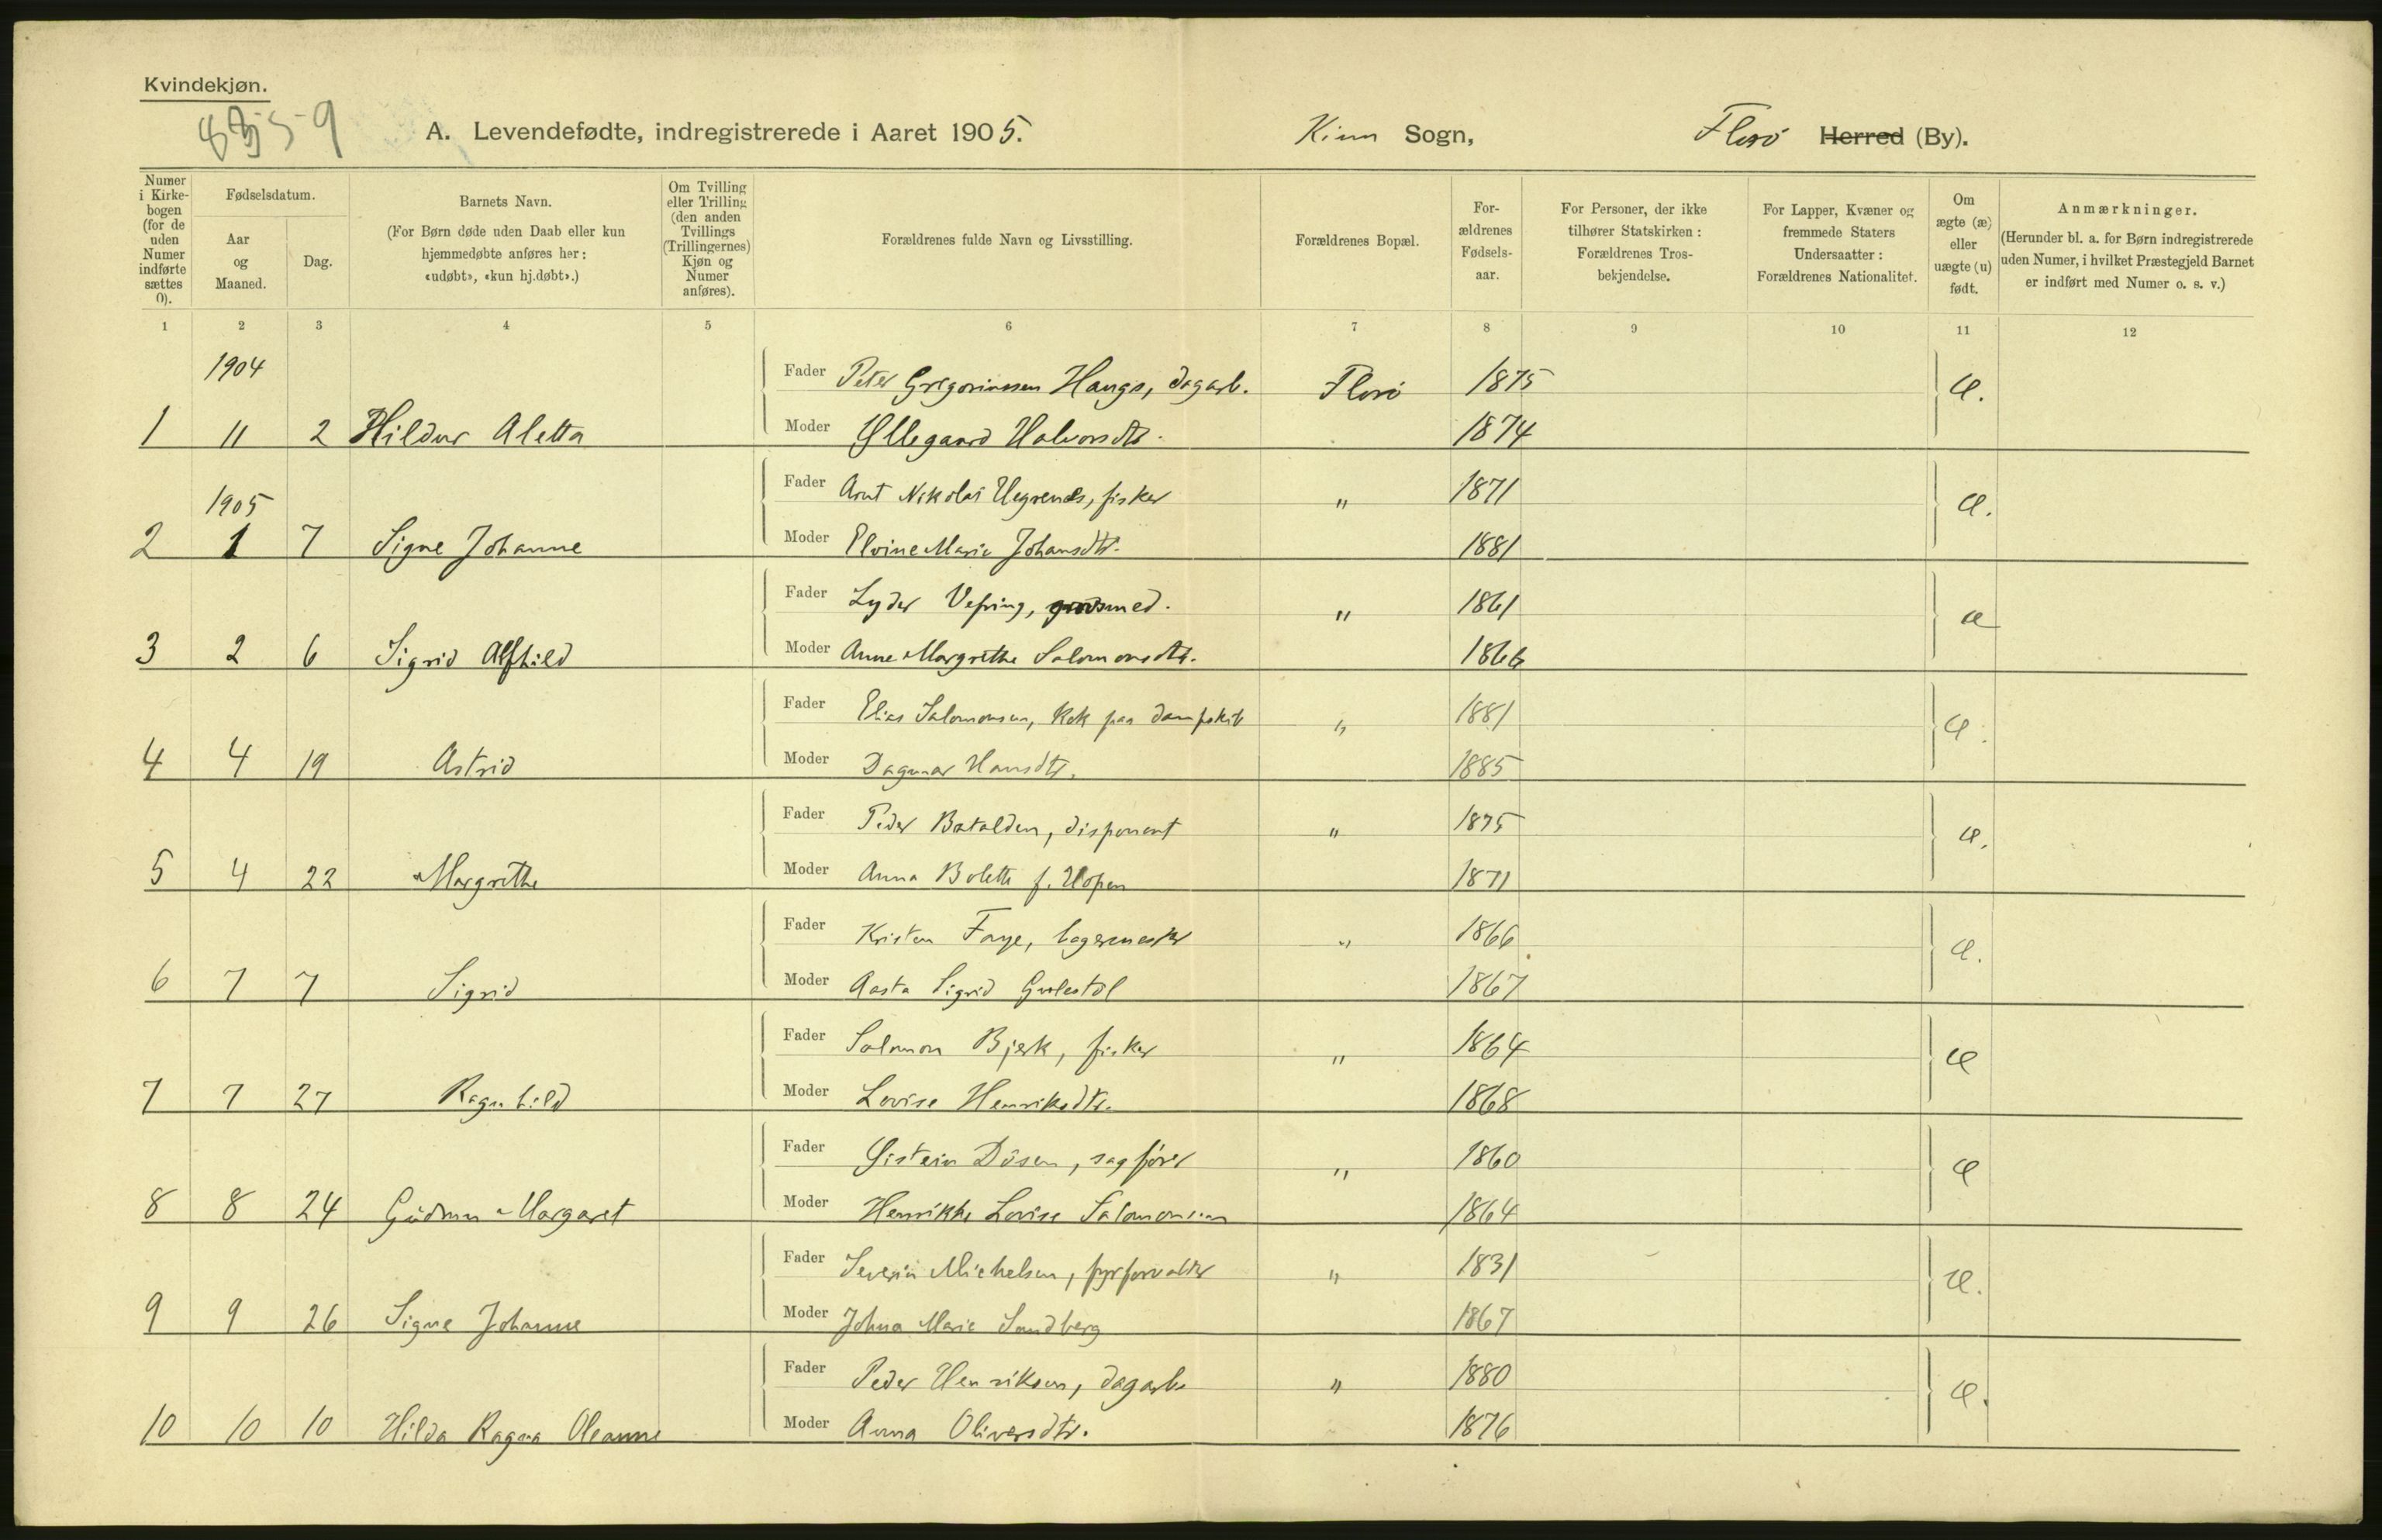 Kvindekjøn.
A. Levendefødte, indregistrerede i Aaret 1905. Kinn Sogn, Florø Herred (By).
Numer i Kirkebogen (for de uden Numer indførte sættes 0).
Fødselsdatum.
Aar og Maaned.
Dag.
Barnets Navn.
(For Børn døde uden Daab eller kun hjemmedøbte anføres her: «udøbt», «kun hj.døbt».)
Om Tvilling eller Trilling (den anden Tvillings (Trillingernes) Kjøn og Numer anføres).
Forældrenes fulde Navn og Livsstilling.
Forældrenes Bopæl.
Forældrenes Fødselsaar.
For Personer, der ikke tilhører Statskirken: Forældrenes Trosbekjendelse.
For Lapper, Kvæner og fremmede Staters Undersaatter: Forældrenes Nationalitet.
Om ægte (æ) eller uægte (u) født.
Anmærkninger.
(Herunder bl. a. for Børn indregistrerede uden Numer, i hvilket Præstegjeld Barnet er indført med Numer o. s. v.)
1 2 3 4 5 6 7 8 9 10 11 12
1904 Fader Peter Grigoriussen Hauge, dagarb. Florø 1875 æ.
1 11 2 Hildur Aletta Moder Øllegaard Halvorsdtr. 1874
1905 Fader Arnt Nikolai Hegrenes, fisker " 1871 æ.
2 1 7 Signe Johanne Moder Elvine Marie Johansdtr. 1881
Fader Lyder Vefring, smed. " 1861 æ
3 2 6 Sigrid Alfhild Moder Anne Margrethe Salomonsdtr. 1866
Fader Elias Salomonsen, kok paa dampskib " 1881 æ.
4 4 19 Astrid Moder Dagmar Hansdtr. 1885
Fader Peder Batalden, disponent " 1875 æ.
5 4 22 Margrethe Moder Anna Bolette f. Hopen 1871
Fader Kristen Faye, bagermester " 1866 æ.
6 7 7 Sigrid Moder Aasta Sigrid Gulestøl 1867
Fader Salomon Bjerk, fisker " 1864 æ
7 7 27 Ragnhild Moder Lovise Henriksdtr. 1868
Fader Øistein Døsen, sagfører " 1860 æ
8 8 24 Gudrun Margaret Moder Henrikke Lovise Salomonsen 1864
Fader Severin Michelsen, fyrforvalter " 1831 æ.
9 9 26 Signe Johanne Moder Johna Marie Sandberg 1867
Fader Peder Henriksen, dagarb. " 1880 æ.
10 10 10 Hilda Ragna Oleanne Moder Anna Oliversdtr. 1876